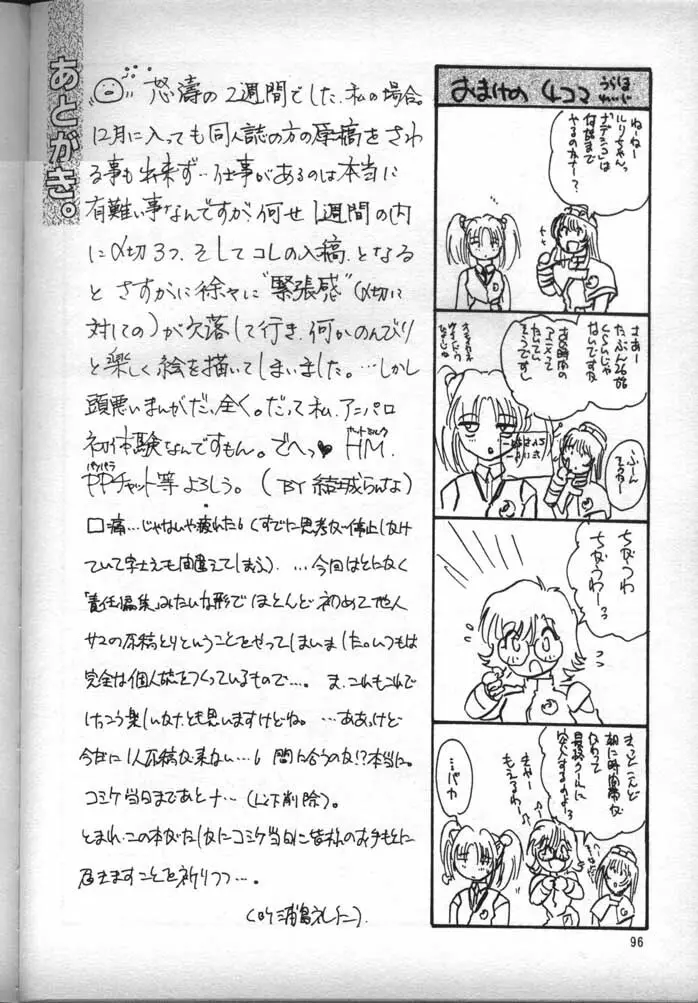 あとがき。
怒濤の2週間でした、私の場合。
12月に入っても同人誌の方の原稿をさわ
る事も出来ず…仕事があるのは本当に
有難い事なんですが、何せ1週間の内
に〆切3つ、そしてコレの入稿、となる
と さすがに徐々に“緊張感”(〆切に
対しての)が欠落して行き、何かのんびり
と楽しく絵を描いてしまいました。…しかし
頭悪いまんがだ、全く。だって私、アニパロ
初体験なんですもん。でへっ♥ HM、
PPチャット等よろしう。(BY 結城らんな)
口痛…じゃないや疲れた
ていて字さえも間違えてしまふ)。…今回はとにかく
「責任編集」みたいな形で ほとんど初めて他人
サマの原稿とりということをやってしまいました。いつもは
完全な個人誌をつくっているもので…。ま、これもこれで
けっこう楽しいなとも思いますけどね。…ああっけど
今だに1人原稿が来ない…6 間に合うのか!?本当に。
コミケ当日まであと十…(以下削除)。
ともあれ、この本がたしかにコミケ当日に皆様のお手もとに
届きますことを祈りつつ…。
おまけの 4コマ
ねーねー
ルリちゃんっ
ナデシコは
何話まで
やるのかなー?
さあー
たぶん26話
くらいじゃ
ないですか
アニメって
たいてい
そうですし
ふーん
ちがうわ
ちがうわー
きっとこんど
朝に時間帯が
なわって
最終クールに
突入するのよっ
きゃー
もえるわー
…バカ
96